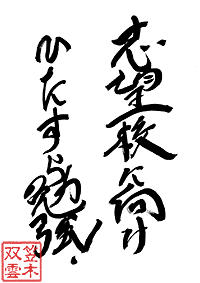 志望校に向け
ひたすら勉強、
笠木
双雲